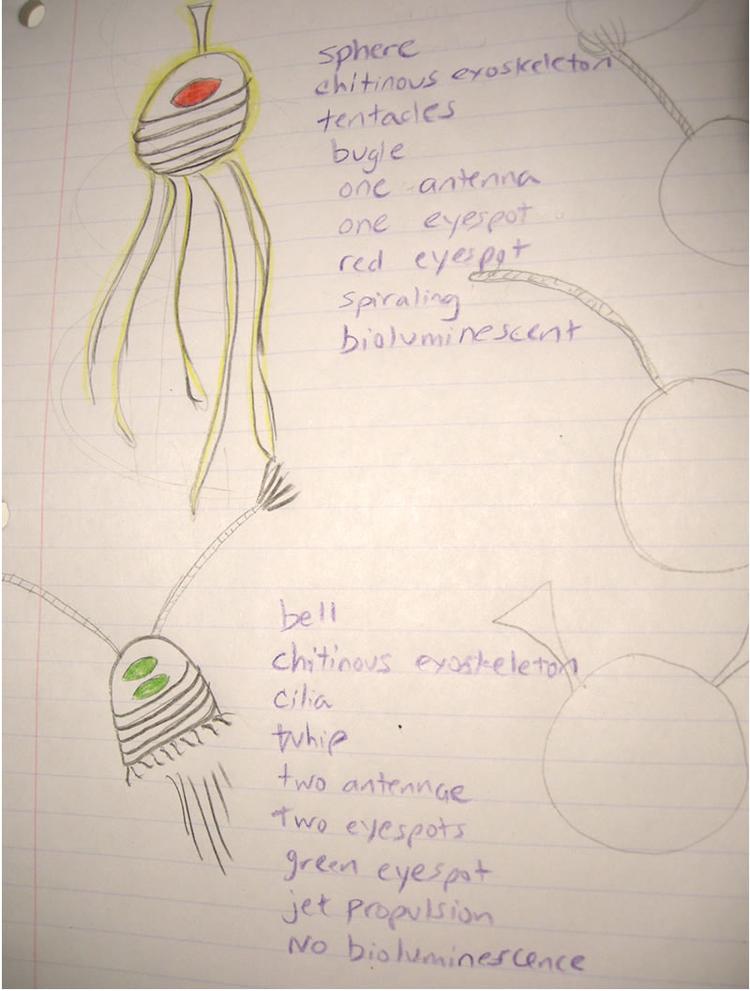 sphere
chitinous exoskeleton
tentacles
bugle
one antenna
one eyespot
red eyespot
spiraling
bioluminescent
bell
chitinous exoskeleton
cilia
whip
two antennae
two eyespots
green eyespot
jet propulsion
No bioluminescence